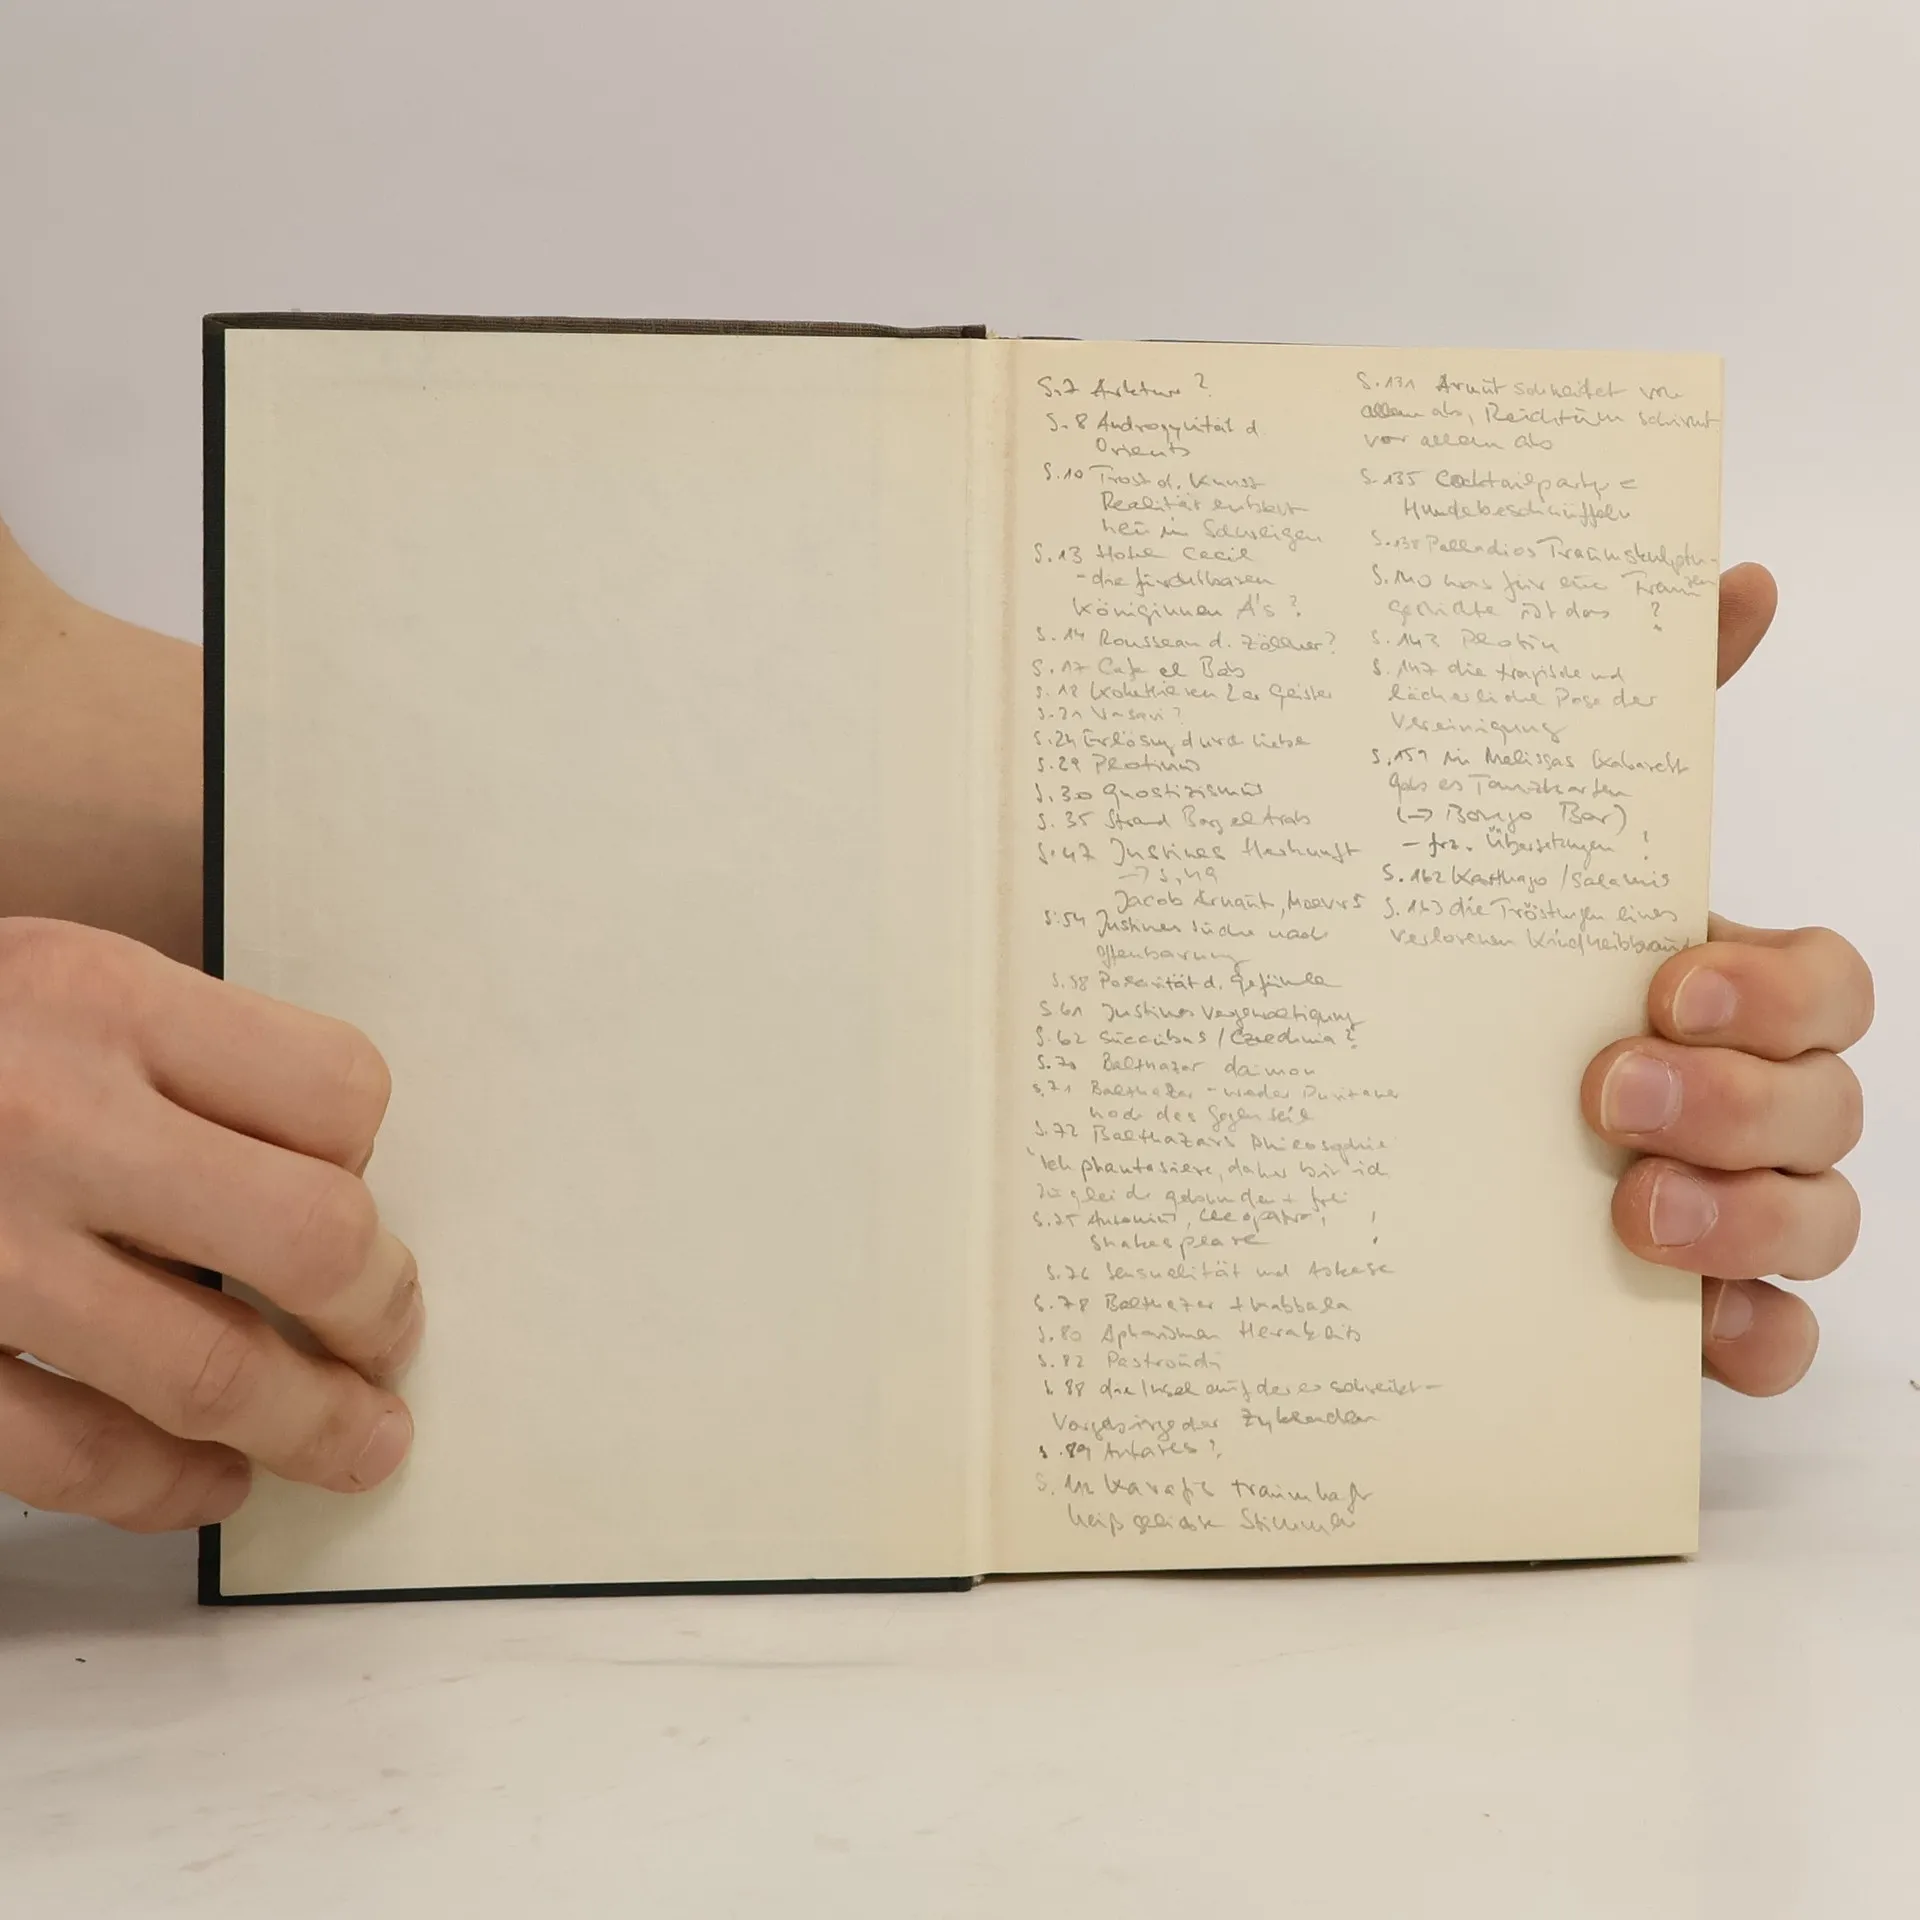 S.7 Arktur ?
S. 8 Androgynität d.
Orients
S. 10 Trost d. Kunst
Realität entsteht
neu im Schweigen
S. 13 Hotel Cecil
- die furchtbaren
Königinnen A's ?
S. 14 Rousseau d. Zöllner ?
S. 17 Cafe el Bab
S. 18 Kokettieren der Geister
S. 21 Vasari ?
S. 24 Erlösung durch Liebe
S. 29 Plotinus
S. 30 Gnostizismus
S. 35 Strand Borg el Arab
S. 47 Justines Herkunft
→ S. 49
Jacob Arnauti, Moeurs
S. 54 Justines Suche nach
Offenbarung
S. 58 Polarität d. Gefühle
S. 61 Justines Vergewaltigung
S. 62 Succubus / ?
S. 70 Balthazar daimon
S. 71 Balthazar - weder Puritaner
noch das Gegenteil
S. 72 Balthazars Philosophie
"Ich phantasiere, daher bin ich
zugleich gebunden + frei
S. 75 Antonius, Cleopatra, !
Shakespeare
S. 76 Sensualität und Askese
S. 78 Balthazar + Kabbala
S. 80 Aphorismen Heraklits
S. 82 Pastroudi
S. 88 die Insel auf der er schreibt -
Vorgebirge der Zykladen
S. 89 Antares ?
S. 112 Kavafis traumhaft
heiß geliebte Stimmen
S. 131 Armut schneidet von
allem ab, Reichtum schirmt
vor allem ab
S. 135 Cocktailparty =
Hundebeschnüffeln
S. 138 Palladios Traumskulptu-
ren
S. 140 was für eine Frauen
geschichte ist das ?
S. 143 Plotin
S. 147 die tragische und
lächerliche Pose der
Vereinigung
S. 159 in Melissas Kabarett
gab es Tanzkarten
(→ Bongo Bar)
- frz. Übersetzungen !
S. 162 Karthago / Salamis
S. 163 die Tröstungen eines
verlorenen